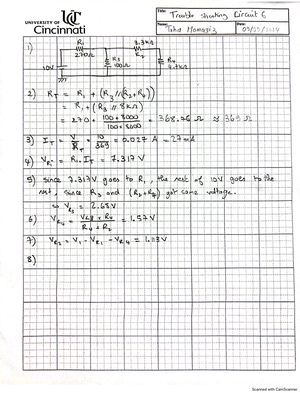 UNIVERSITY OF
UC
Cincinnati
Title:
Trouble shooting Circuit 6
Name:
Date:
09/09/2024
1)
R₁
270Ω
3.3kΩ
R₂
R₃
100Ω
R₄
4.7kΩ
10V
2) R_T = R₁ + (R₃ // (R₂ + R₄))
= R₁ + (R₃ // 8kΩ)
= 270 + (100 × 8000)/(100 + 8000) = 368.76 Ω ≈ 369 Ω
3) I_T = V/R_T = 10/369 = 0.027 A = 27mA
4) V_R₁ = R₁ . I_T = 7.317V
5) since 7.317V goes to R₁, the rest of 10V goes to the
rest, since R₃ and (R₂+R₄) got same voltage.
⇒ V_R₃ = 2.68V
6) V_R₄ = = 1.57V
7) V_R₂ = V₁ - V_R₁ - V_R₄ = 1.113V
8)
Scanned with CamScanner